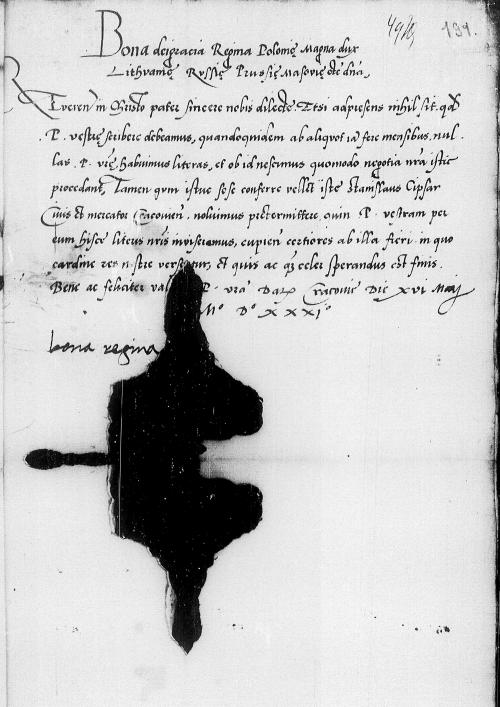 49/6, 191.
Bona dei gracia Regina Polonię Magna dux
Lithvanię Rvssię Prussię Masovię etc dna,
Reveren in Christo pater sincere nobis dilecte. Etsi ad presens nihil sit, qd
P. vestrę scribere debeamus, quandoquidem ab aliquot ia fere mensibus, nul-
las . P. vrę, habuimus literas, et ob id nescimus quomodo negotia nra istic
procedant, Tamen qvm istuc sese conferre vellet iste Stanislaus Cipsar
Civis et mercator Cracovien. noluimus pretermittere, quin P. vestram per
eum hisce literis nris inviseremus, cupien certiores ab illa fieri in quo
cardine res nostrę versentur, et quis ac celei sperandus est finis.
Bene ac feliciter va P. vra Dat Cracovie Die xvi Maij
Mo Do xxxio
bona regina